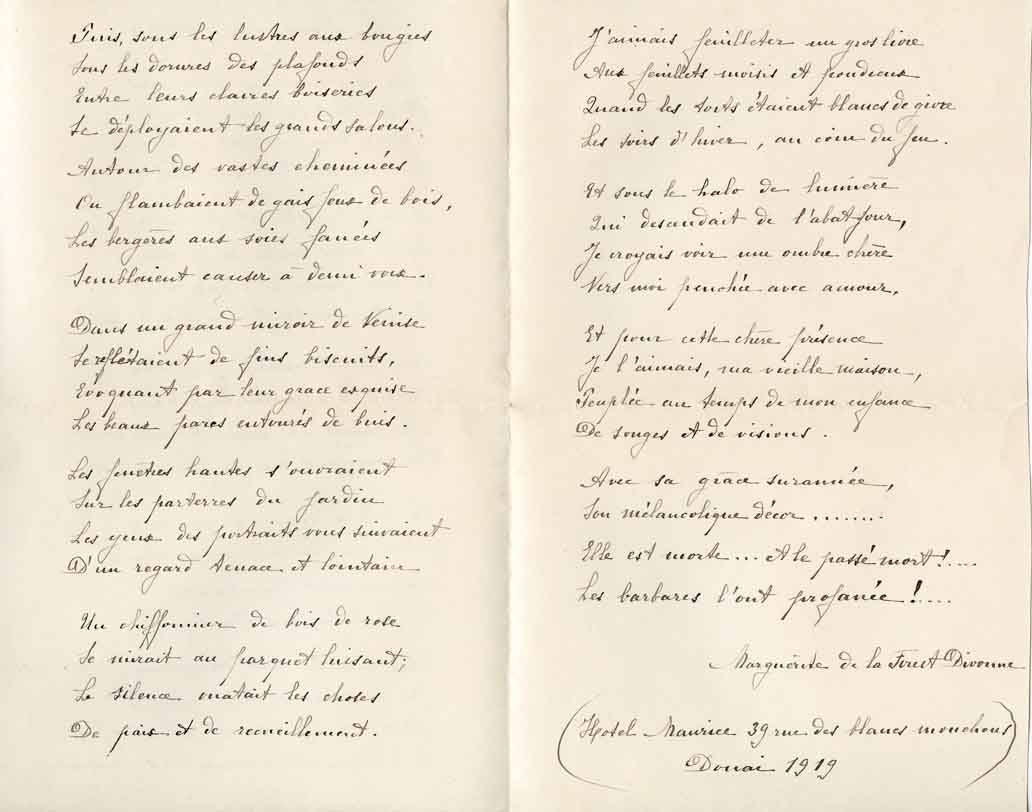 Puis, sous les lustres aux bougies
Sous les dorures des plafonds
Entre leurs claires boiseries
Se déployaient les grands salons.
Autour des vastes cheminées
Ou flambaient de gais feux de bois,
Les bergères aux soies fanées
Semblaient causer à demi voix.
Dans un grand miroir de Venise
Se reflétaient de fins biscuits,
Evoquant par leur grace exquise
Les beaux parcs entourés de buis.
Les fenêtres hautes s'ouvraient
Sur les parterres du jardin
Les yeux des portraits vous suivaient
D'un regard tenace et lointain
Un chiffonnier de bois de rose
Se mirait au parquet luisant;
Le silence ouatait les choses
De paix et de recueillement.
J'aimais feuilleter un gros livre
Aux feuillets moisis et poudreux
Quand les toits étaient blancs de givre
Les soirs d'hiver, au coin du feu.
Et sous le halo de lumière
Qui descendait de l'abat-jour,
Je croyais voir une ombre chère
Vers moi penchée avec amour.
Et pour cette chère présence
Je l'aimais, ma vieille maison,
Peuplée au temps de mon enfance
De songes et de visions.
Avec sa grâce surannée,
Son mélancolique décor........
Elle est morte... et le passé mort!....
Les barbares l'ont profanée!....
Marguerite de la Forest Divonne
(Hotel Maurice 39 rue des blancs mouchons
Douai 1919